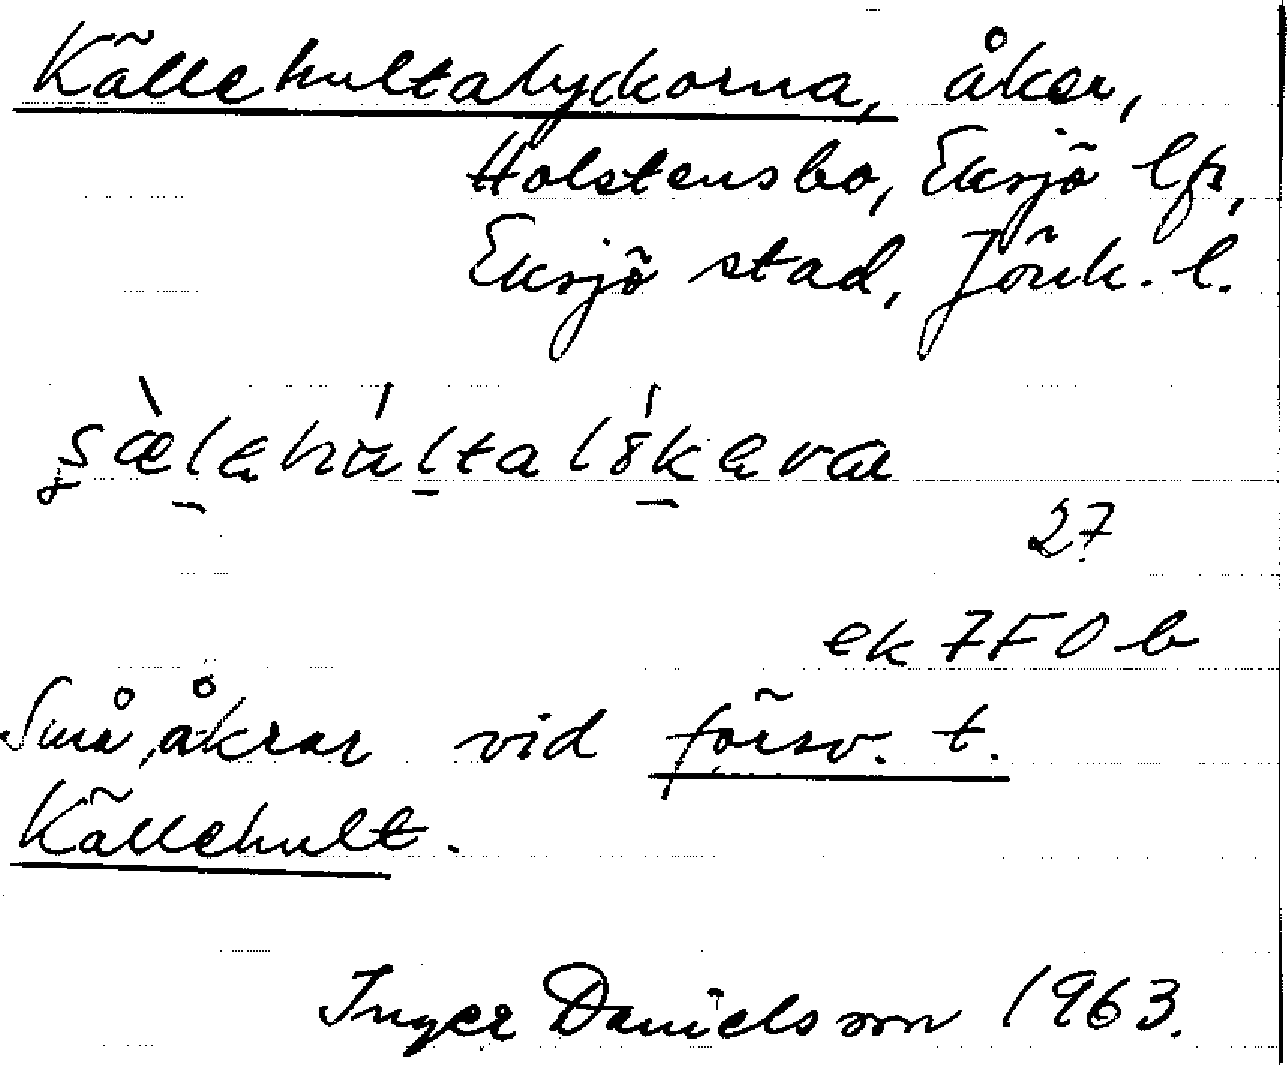 Källehultalyckorna, åker,
Holstensbo, Eksjö lfs,
Eksjö stad, Jönk. l.
27
ek 7F0b
Små åkrar vid försv. t.
Källehult.
Inger Danielsson 1963.